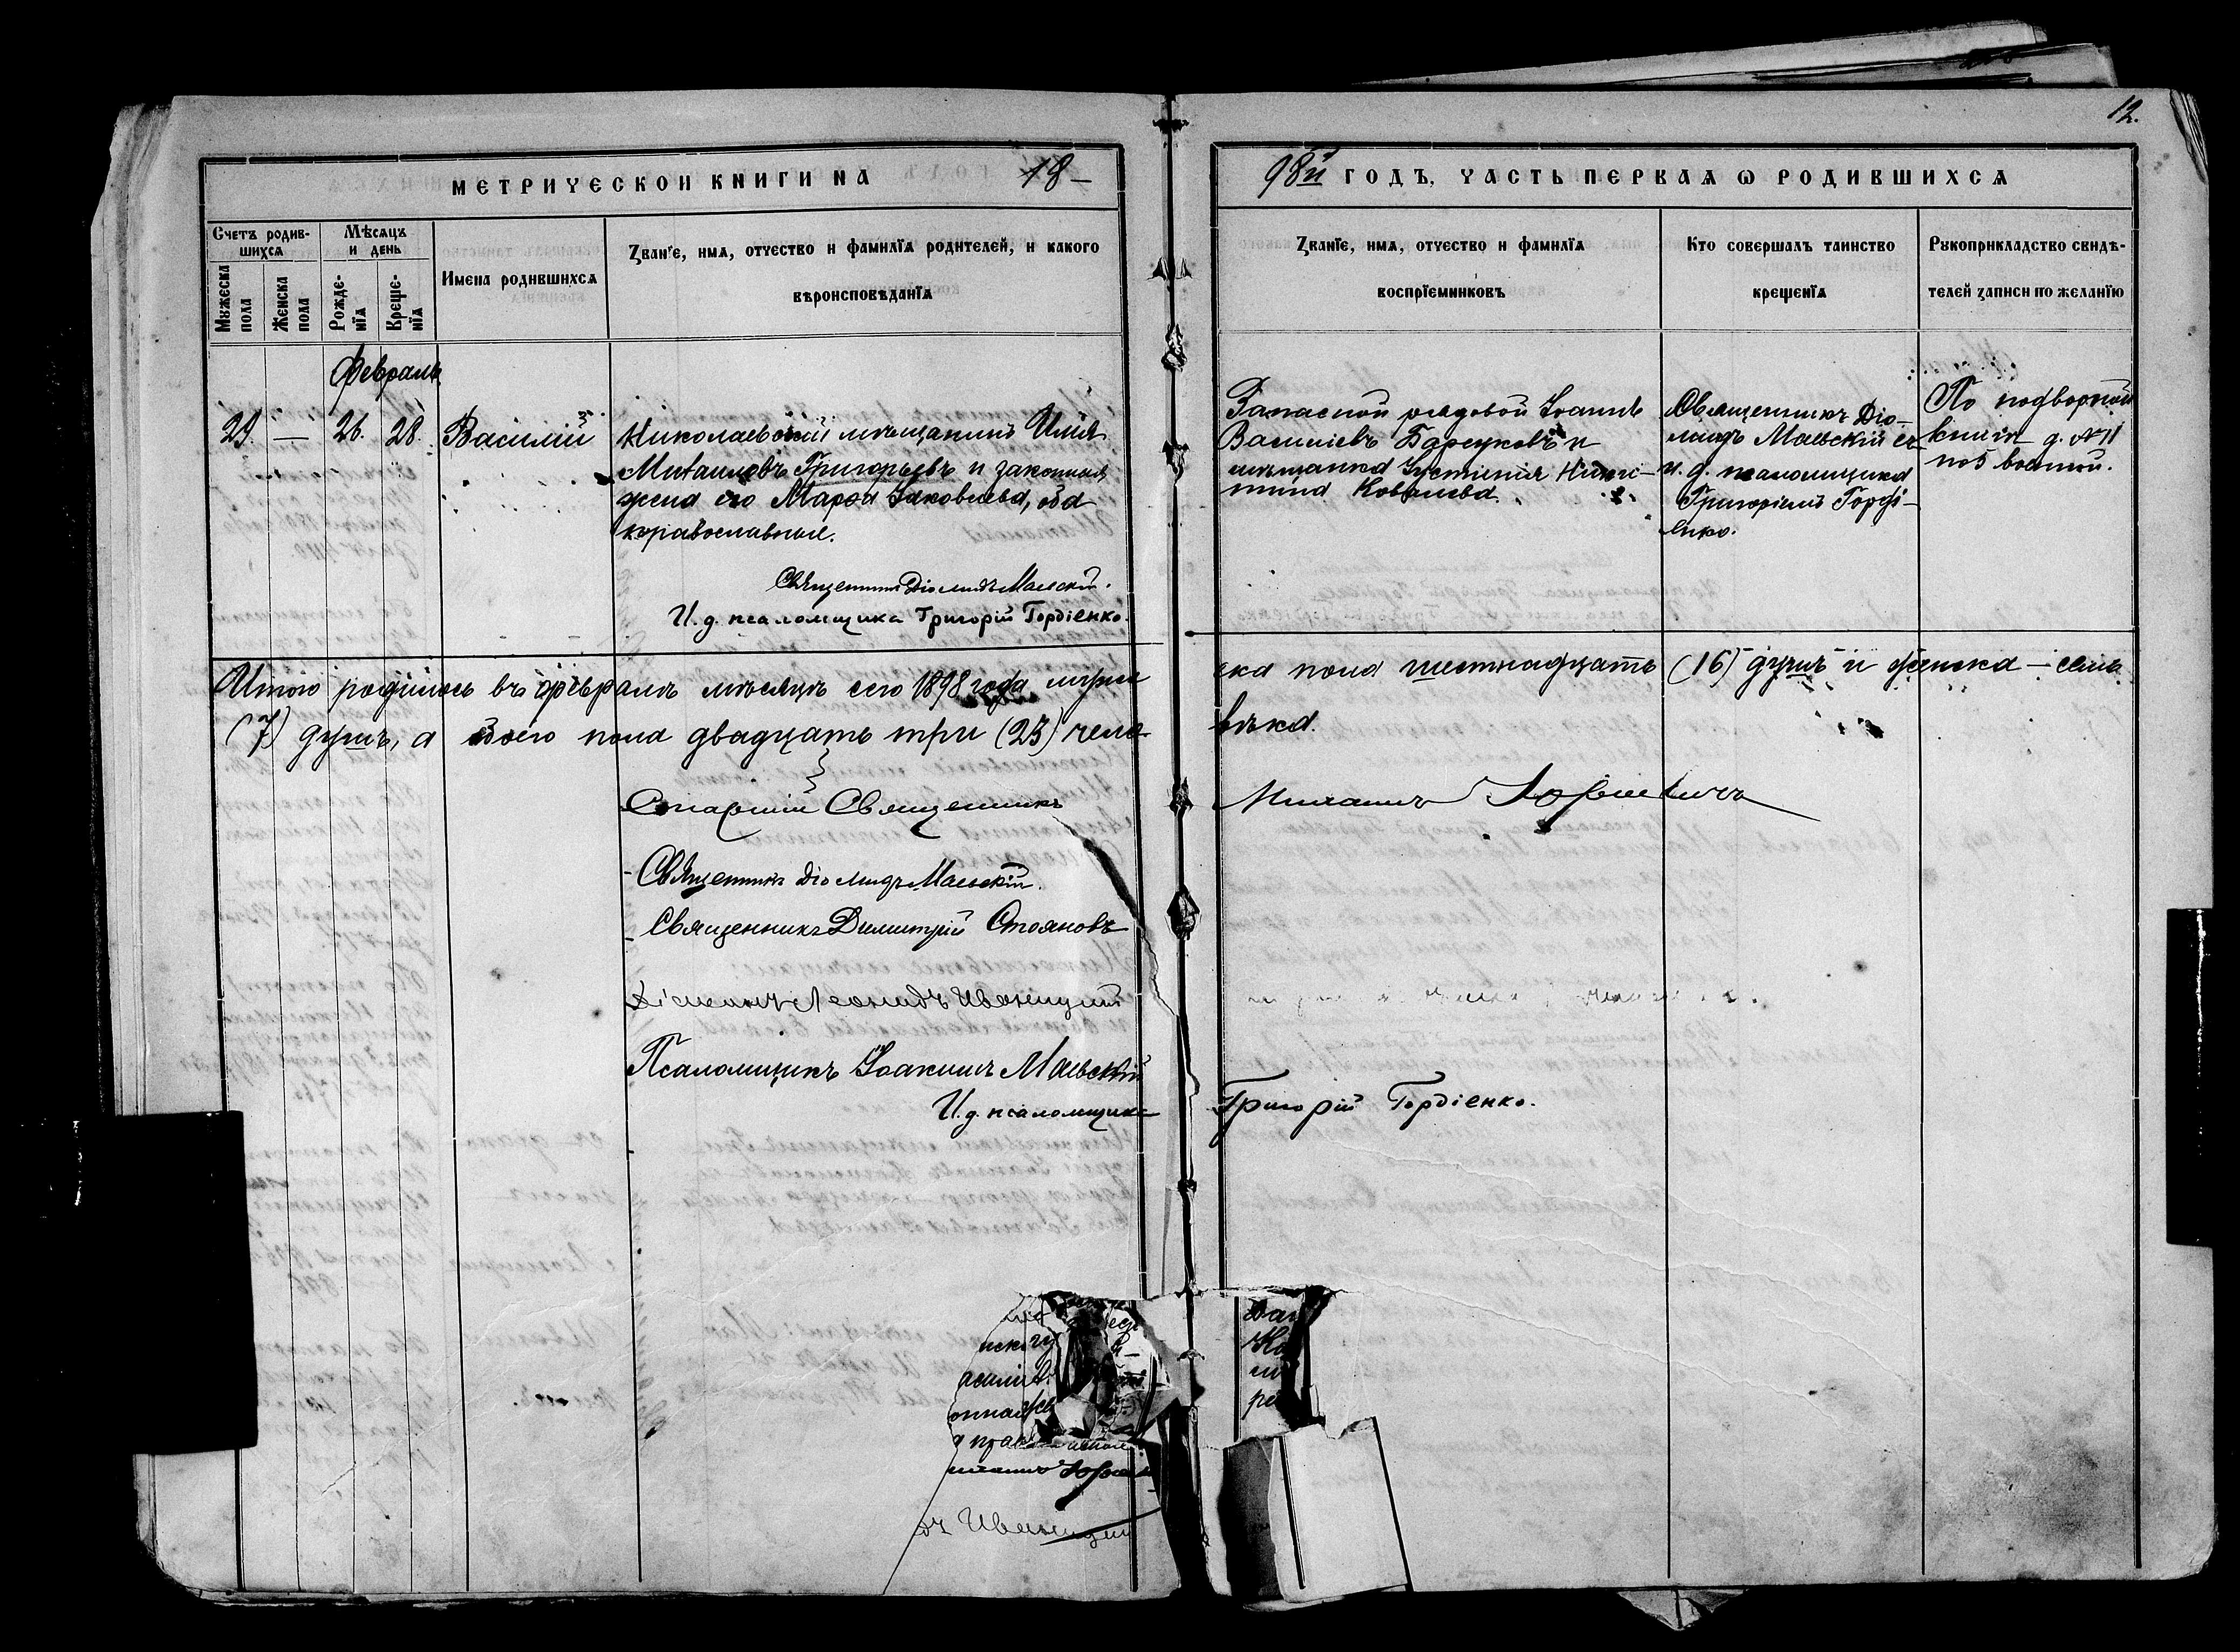 12.
МЕТРИЧЕСКОЙ КНИГИ НА 18–
98й ГОДЪ, ЧАСТЬ ПЕРВАЯ Ѡ РОДИВШИХСЯ
Счетъ родив-
шихся
Мужеска пола
Женска пола
Мѣсяцъ
и день
Рожде-
нїя
Креще-
нїя
Имена родившихся
Званїе, имя, отчество и фамилїя родителей, и какого
вѣроисповѣданїя
Званїе, имя, отчество и фамилїя
воспрїемниковъ
Кто совершалъ таинство
крещенїя
Рукоприкладство свидѣ-
телей записи по желанїю
Февраль
29. — 26. 28. Василій
Николаевскій мѣщанинъ Илія
Михаиловъ Григорьевъ и законная
жена его Марѳа Іаковлева, оба
православные.
Священникъ Діомидъ Маевскій.
И. д. псаломщика Григорій Гордіенко.
Запасной рядовой Іоаннъ
Василіевъ и
мѣщанка Іустинія
Ковалева.
Священникъ Діо-
мидъ Маевскій съ
и. д. псаломщика
Григоріемъ Горді-
енко.
По подворной
книги д. №11
Итого родилось въ февралѣ мѣсяцѣ сего 1898 года мужес-
ка пола шестнадцать (16) душъ и женска – семь
(7) душъ, а обоего пола двадцать три (23) чело-
вѣка.
Старшій Священникъ
Священникъ Діомидъ Маевскій.
Священникъ Димитрій Стояновъ
Діаконъ Леонидъ Иваницкій
Псаломщикъ Іоакимъ Маевскій
И. д. псаломщика Григорій Гордіенко.
Иваницкій